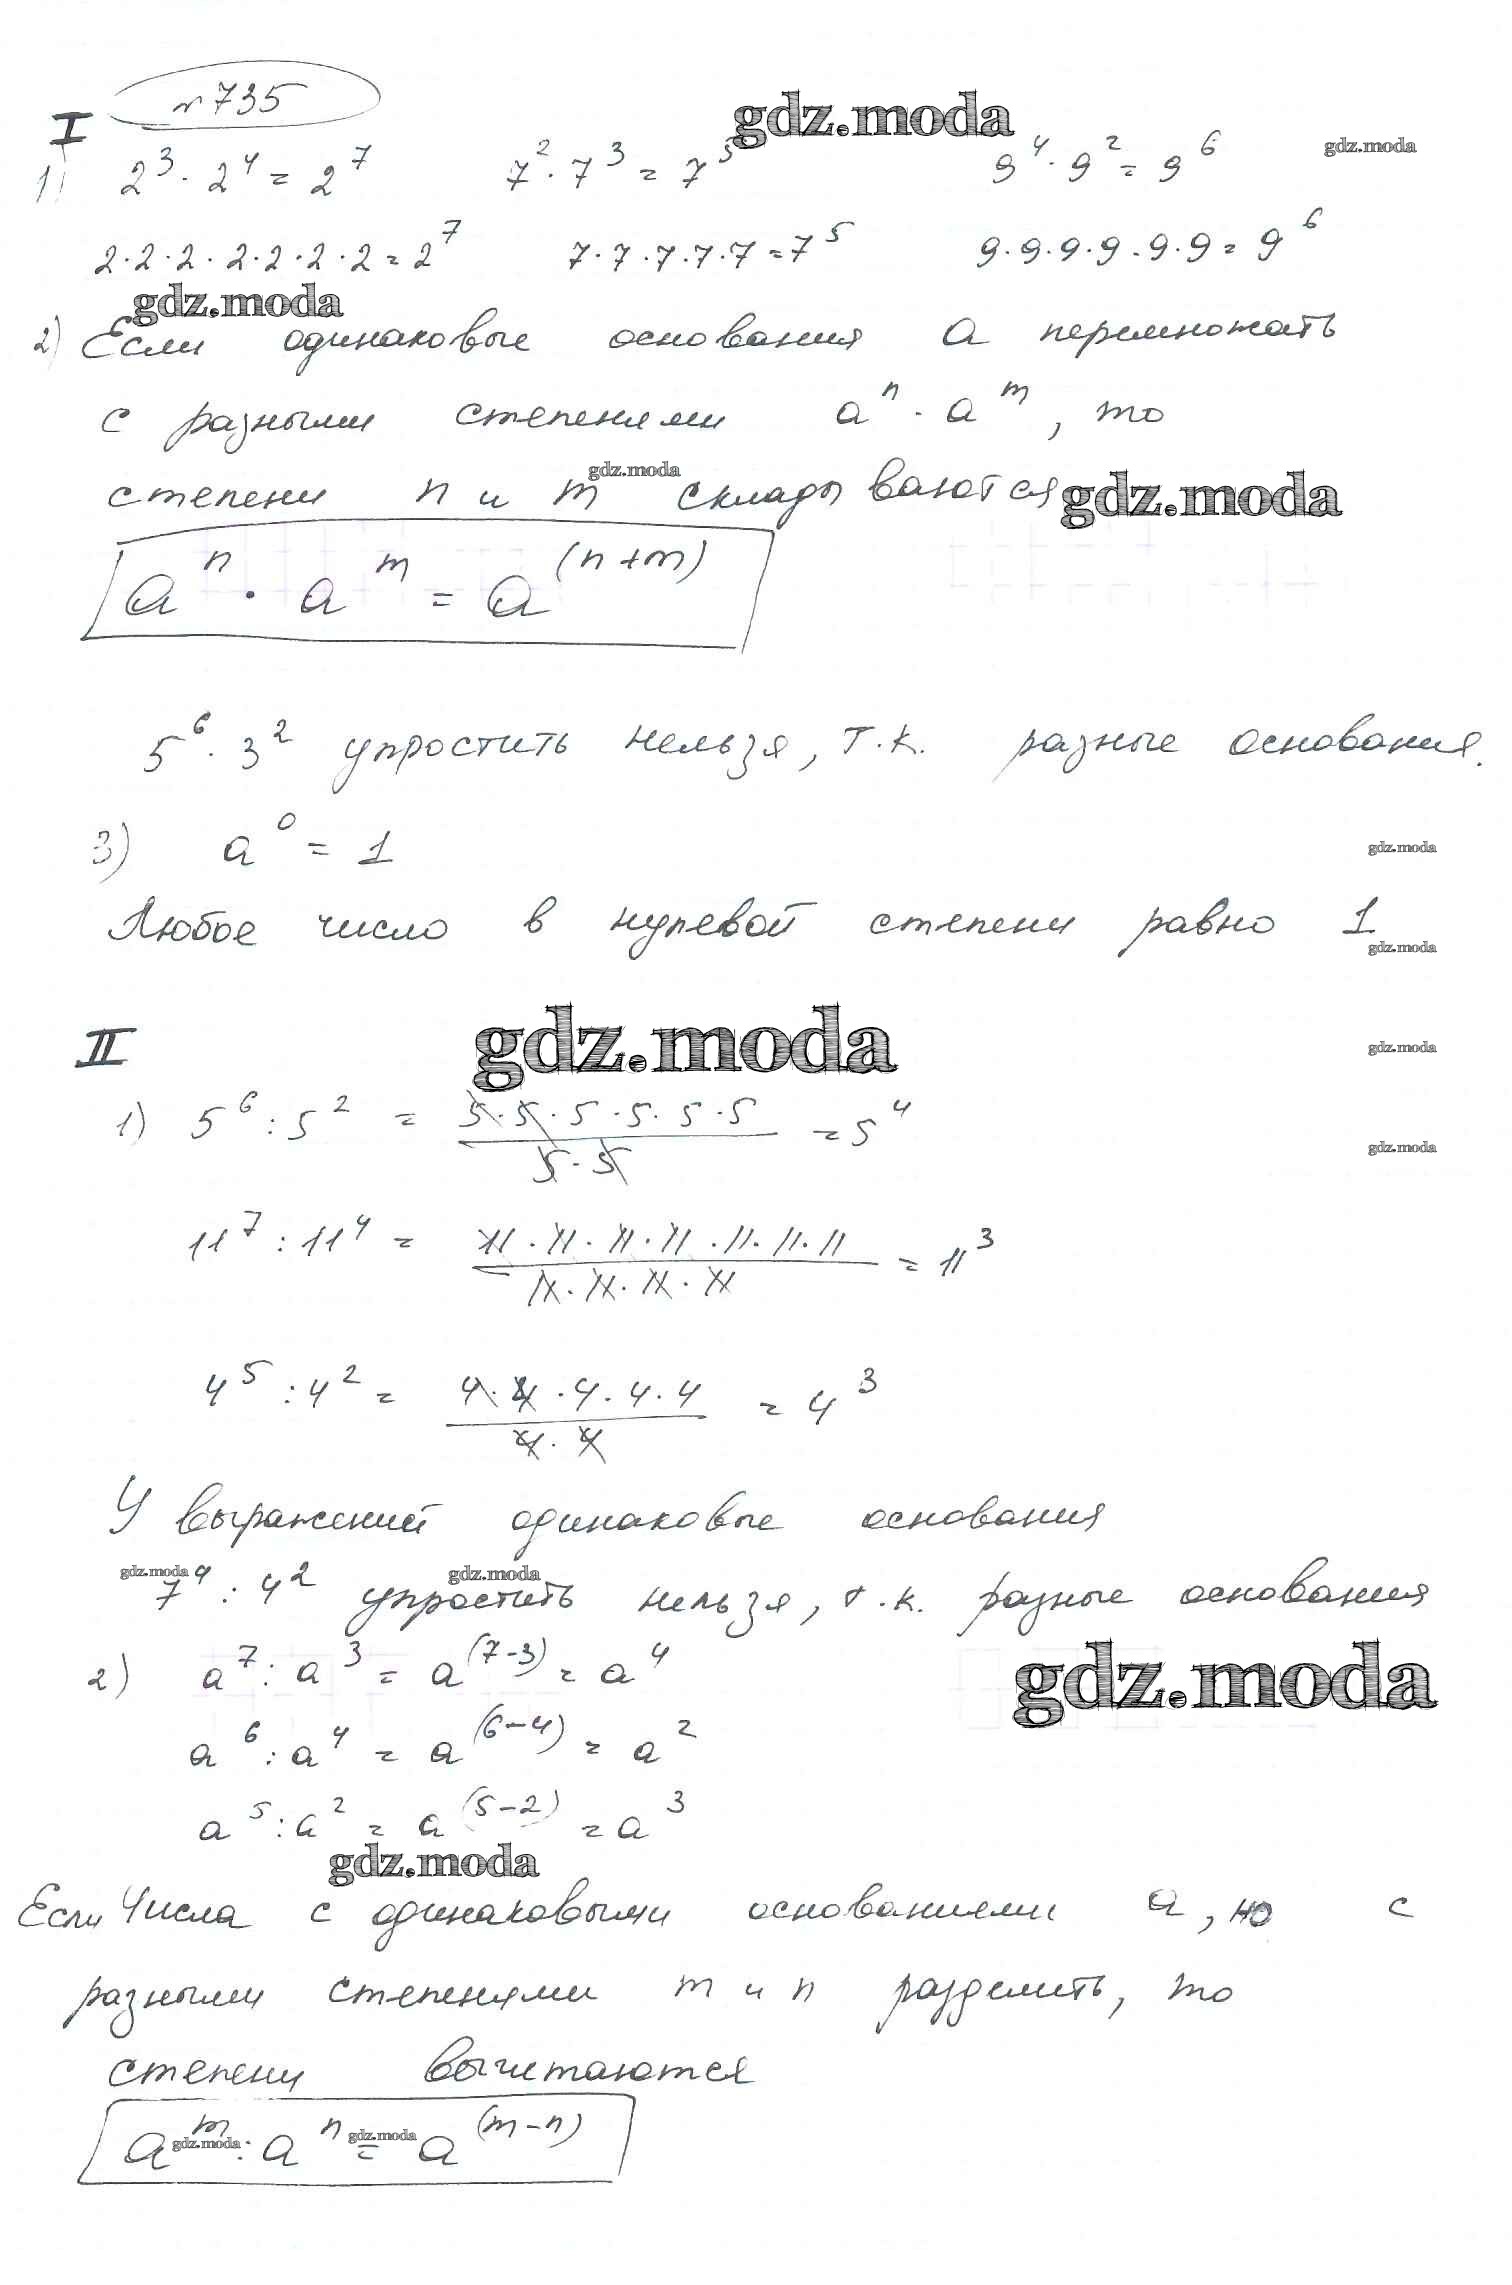 №735
gdz.moda
I
gdz.moda
1) 2³ · 2⁴ = 2⁷ 7² · 7³ = 7⁵ 9⁴ · 9² = 9⁶
2·2·2·2·2·2·2 = 2⁷ 7·7·7·7·7 = 7⁵ 9·9·9·9·9·9 = 9⁶
gdz.moda
2) Если одинаковые основания a перемножать
с разными степенями aⁿ · aᵐ, то
gdz.moda
степени n и m складываются
gdz.moda
aⁿ · aᵐ = a⁽ⁿ⁺ᵐ⁾
5⁶ · 3² упростить нельзя, т.к. разные основания.
3) a⁰ = 1
gdz.moda
Любое число в нулевой степени равно 1
gdz.moda
II
gdz.moda
gdz.moda
1) 5⁶ : 5² = 5·5·5·5·5·5 / 5·5 = 5⁴
gdz.moda
11⁷ : 11⁴ = 11·11·11·11·11·11·11 / 11·11·11·11 = 11³
4⁵ : 4² = 4·4·4·4·4 / 4·4 = 4³
У выражений одинаковые основания
gdz.moda gdz.moda
7⁴ : 4² упростить нельзя, т.к. разные основания
2) a⁷ : a³ = a⁽⁷⁻³⁾ = a⁴
gdz.moda
a⁶ : a⁴ = a⁽⁶⁻⁴⁾ = a²
a⁵ : a² = a⁽⁵⁻²⁾ = a³
gdz.moda
Если числа с одинаковыми основаниями a, но с
разными степенями m и n разделить, то
степени вычитаются
aᵐ : aⁿ = a⁽ᵐ⁻ⁿ⁾
gdz.moda gdz.moda